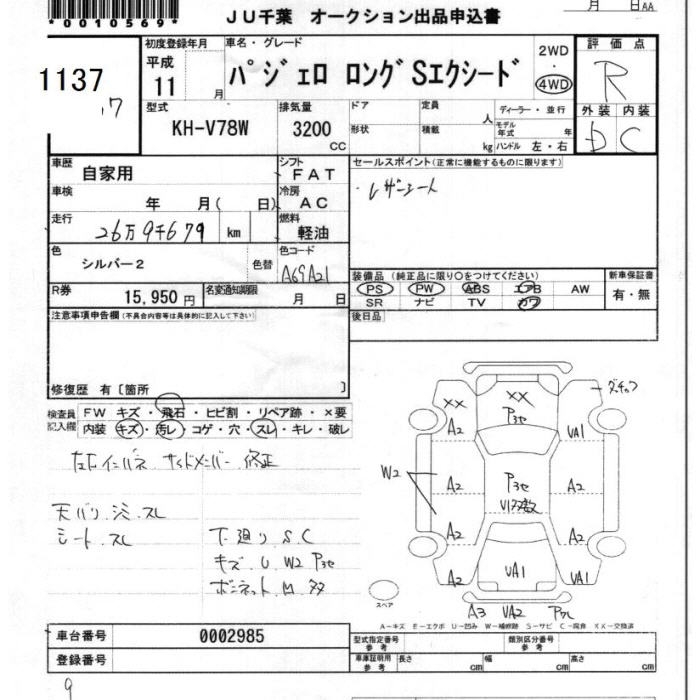 *0010569*
JU千葉 オークション出品申込書
月 日AA
1137
17
初度登録年月
平成
11 月
車名・グレード
パジェロ ロングSエクシード
2WD
・
4WD
評価点
R
型式
KH-V78W
排気量
3200
CC
ドア
形状
定員
人
積載
kg
ディーラー・並行
モデル年式 年
ハンドル 左・右
外装 内装
D C
車歴
自家用
シフト
FAT
セールスポイント(正常に機能するものに限ります)
・レザーシート
車検
年 月( 日)
冷房
AC
走行
26万9千679 km
燃料
軽油
色
シルバー2
色替
色コード
A69A21
装備品(純正品に限り○をつけてください)
新車保証書
PS PW ABS エアB AW
有・無
SR ナビ TV カワ
R券
15,950円
名変通知期限
月 日
後日品
注意事項申告欄(不具合内容等は具体的に記入して下さい)
修復歴 有〔箇所 〕
検査員記入欄
FW キズ・飛石・ヒビ割・リペア跡・×要
内装 キズ・汚レ・コゲ・穴・スレ・キレ・破レ
左右インパネ サイドメンバー 修正
天バリ シミ スレ
シート スレ
下廻り S C
キズ U W2 Pヨセ
ボンネット M 多
XX XX
Pヨセ
A2 VA1
W2 A2 Pヨセ A2
A2 A2
A2 VA1 VA1
A3 VA2
スペア
A-キズ E-エクボ U-凹み W-補修跡 S-サビ C-腐食 XX-交換済
車台番号 0002985
登録番号
型式指定番号 参考
類別区分番号 参考
車庫証明用 参考
長さ cm 幅 cm 高さ cm
9